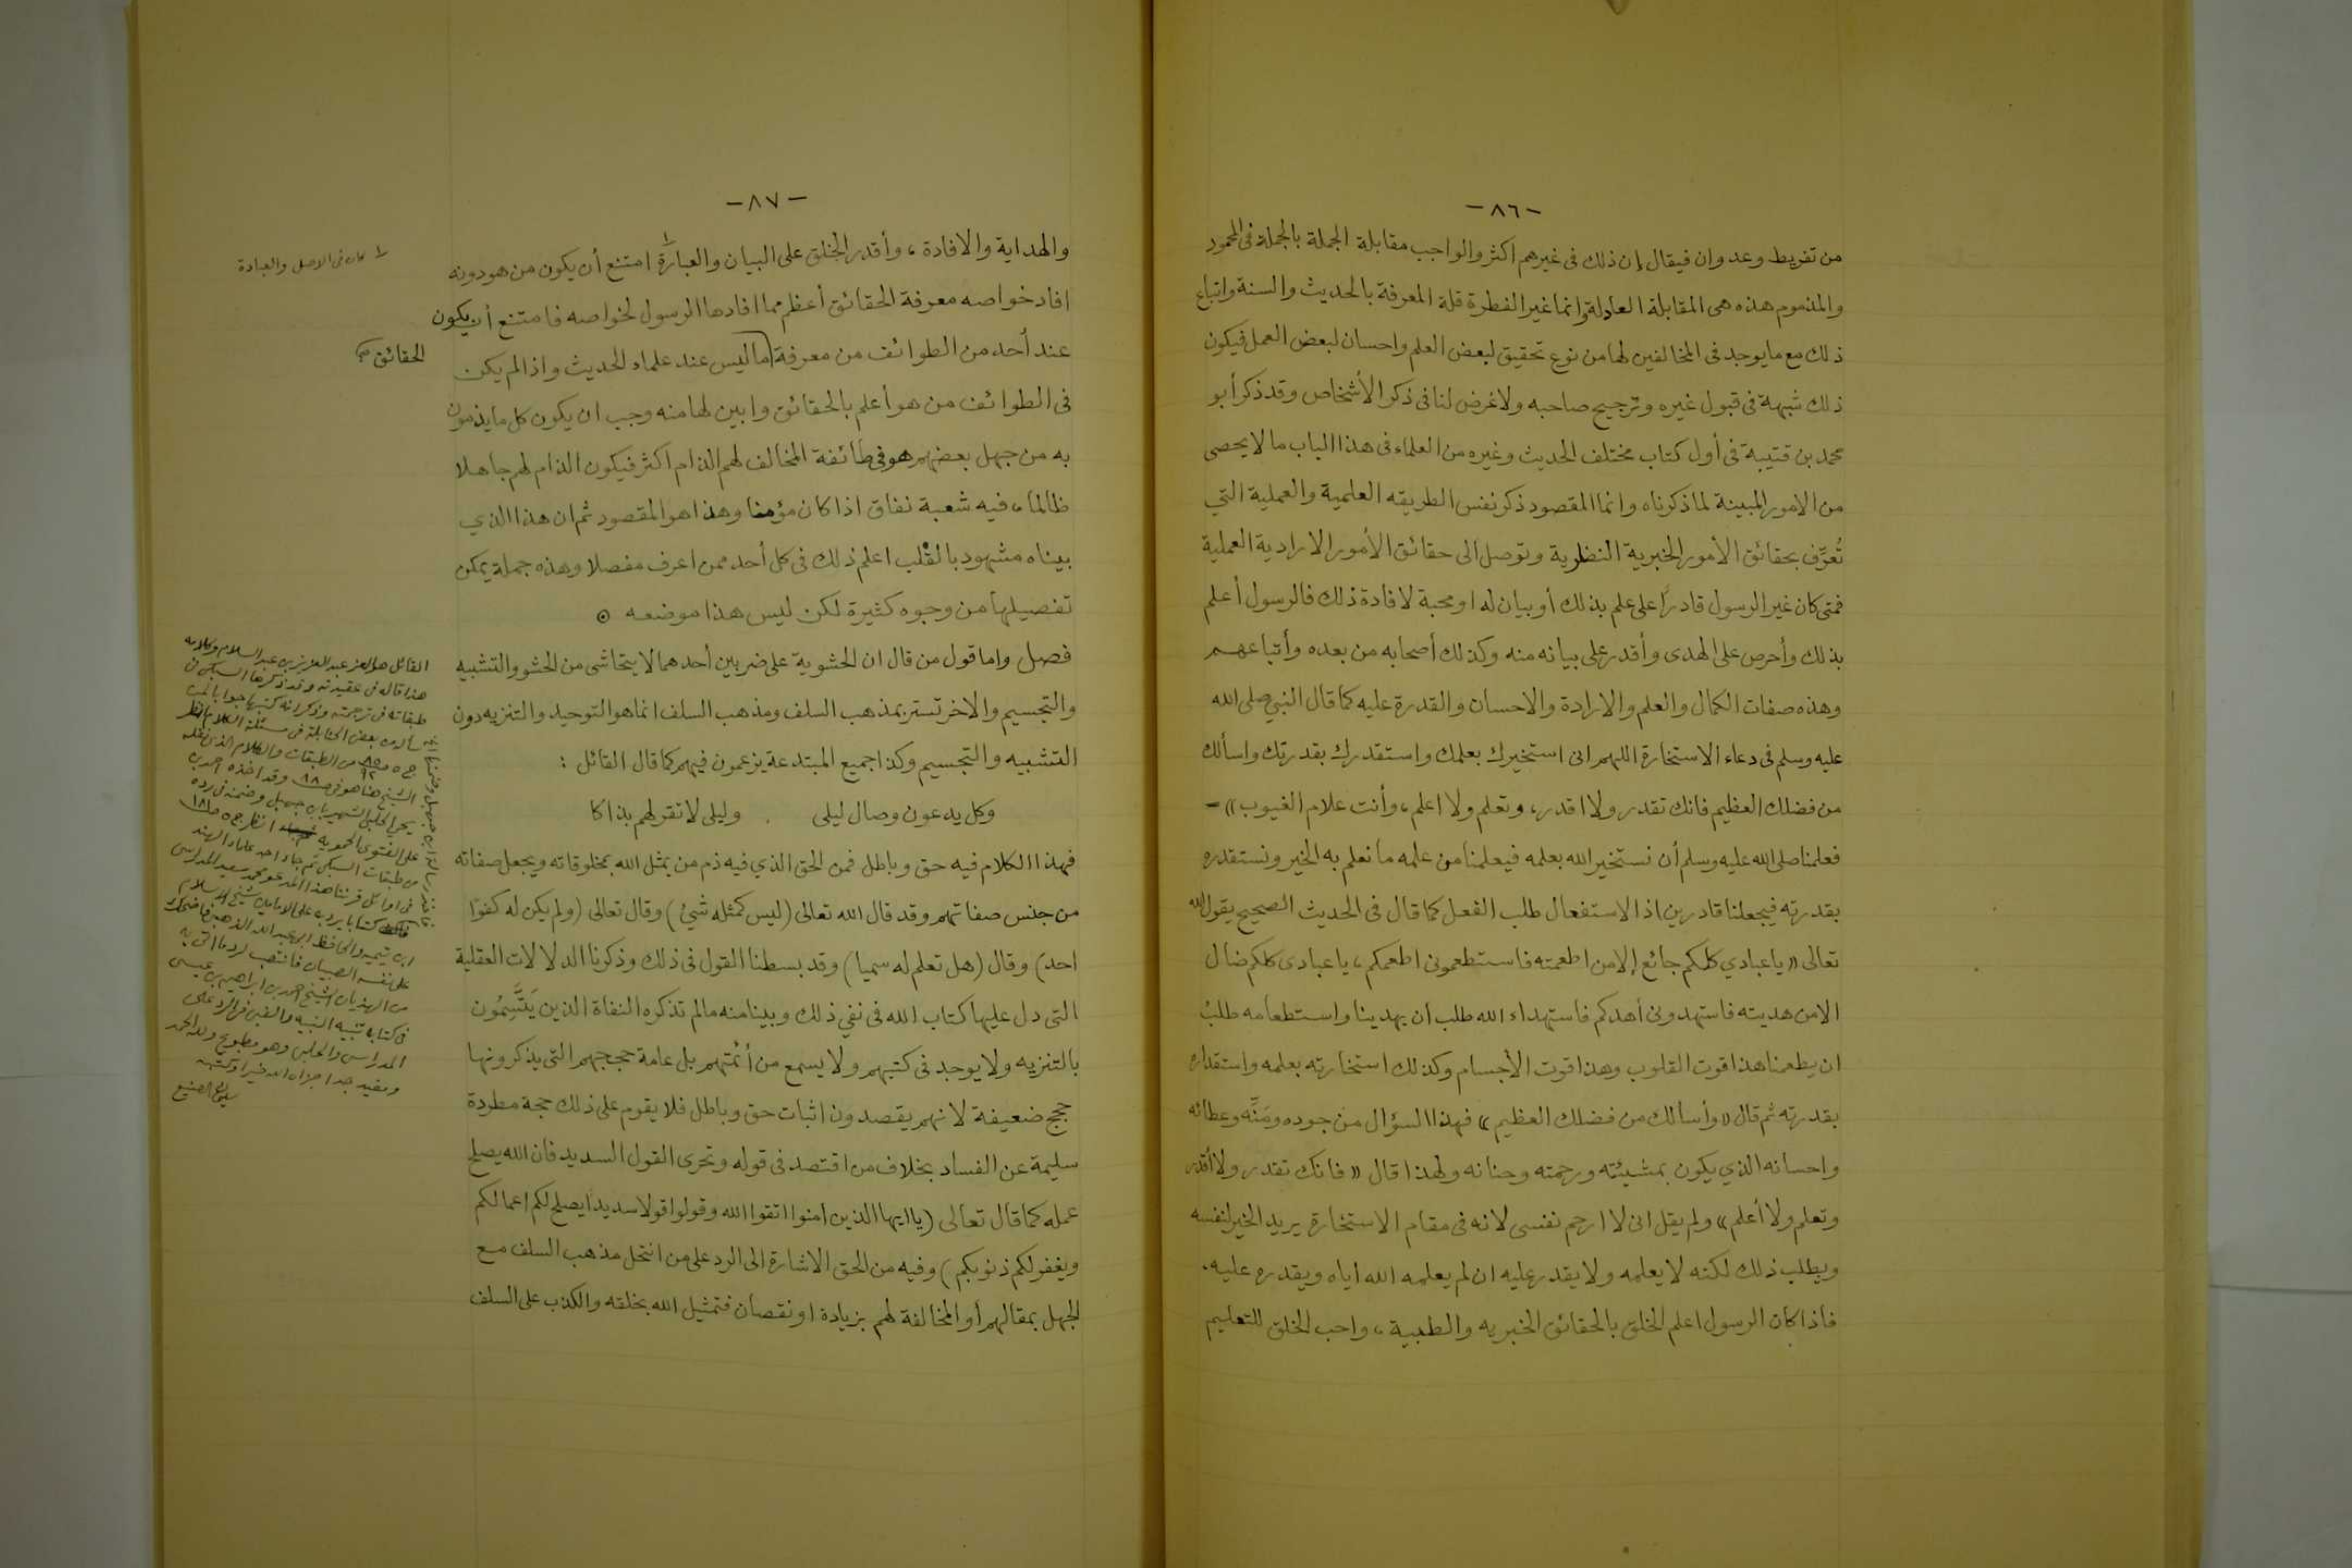 -٨٦-
من تفريط وعدوان فيقال إن ذلك فى غيرهم اكثر والواجب مقابلة الجملة بالجملة فى المحمود
والمذموم هذه هى المقابلة العادلة وانما غير الفطرة قلة المعرفة بالحديث والسنة واتباع
ذلك مع ما يوجد فى المخالفين لها من نوع تحقيق لبعض العلم واحسان لبعض العمل فيكون
ذلك شبهة فى قبول غيره وترجيح صاحبه ولا غرض لنا فى ذكر الأشخاص وقد ذكر أبو
محمد بن قتيبة فى أول كتاب مختلف الحديث وغيره من العلماء فى هذا الباب ما لا يحصى
من الامور المبينة لما ذكرناه وانما المقصود ذكر نفس الطريقه العلمية والعملية التي
تُعرِّف بحقائق الأمور الخبرية النظرية وتوصل الى حقائق الأمور الارادية العملية
فمتى كان غير الرسول قادرًا على علم بذلك أو بيان له او محبة لافادة ذلك فالرسول أعلم
بذلك وأحرص على الهدى وأقدر على بيانه منه وكذلك أصحابه من بعده وأتباعهم
وهذه صفات الكمال والعلم والارادة والاحسان والقدرة عليه كما قال النبي صلى الله
عليه وسلم فى دعاء الاستخارة اللهم انى استخيرك بعلمك واستقدرك بقدرتك واسألك
من فضلك العظيم فانك تقدر ولا اقدر، وتعلم ولا اعلم، وأنت علام الغيوب» -
فعلمنا صلى الله عليه وسلم أن نستخير الله بعلمه فيعلمنا من علمه ما نعلم به الخير ونستقدره
بقدرته فيجعلنا قادرين اذ الاستفعال طلب الفعل كما قال فى الحديث الصحيح يقول الله
تعالى «ياعبادي كلكم جائع إلا من اطعمته فاستطعمونى اطعمكم، ياعبادى كلكم ضال
الا من هديته فاستهدونى أهدكم فاستهداء الله طلب ان يهدينا واستطعامه طلبُ
ان يطعمنا هذا قوت القلوب وهذا قوت الأجسام وكذلك استخارته بعلمه واستقداره
بقدرته ثم قال «وأسالك من فضلك العظيم» فهذا السؤال من جوده ومَنِّه وعطائه
واحسانه الذي يكون بمشيئته ورحمته وحنانه ولهذا قال «فانك تقدر ولا أقدر
وتعلم ولا أعلم» ولم يقل انى لا ارحم نفسى لانه فى مقام الاستخارة يريد الخير لنفسه
ويطلب ذلك لكنه لا يعلمه ولا يقدر عليه ان لم يعلمه الله اياه ويقدره عليه.
فاذا كان الرسول اعلم الخلق بالحقائق الخبريه والطبية، واحب الخلق للتعليم
-٨٧-
والهداية والافادة، وأقدر الخلق على البيان والعبارة١ امتنع أن يكون من هو دونه
افاد خواصه معرفة الحقائق أعظم مما افادها الرسول لخواصه فامتنع أن يكون
عند أحد من الطوائف من معرفة ما ليس عند علماء الحديث واذا لم يكن
فى الطوائف من هو أعلم بالحقائق وابين لها منه وجب ان يكون كل ما يذمون
به من جهل بعضهم هو فى طائفة المخالف لهم الذام اكثر فيكون الذام لهم جاهلا
ظالما، فيه شعبة نفاق اذا كان مؤمنا وهذا هو المقصود ثم ان هذا الذي
بيناه مشهود بالقلب اعلم ذلك فى كل أحد ممن اعرف مفصلا وهذه جملة يمكن
تفصيلها من وجوه كثيرة لكن ليس هذا موضعه ⊙
فصل واما قول من قال ان الحشوية على ضربين أحدهما لا يتحاشى من الحشو والتشبيه
والتجسيم والاخر تستر بمذهب السلف ومذهب السلف انما هو التوحيد والتنزيه دون
التشبيه والتجسيم وكذا جميع المبتدعة يزعمون فيهم كما قال القائل :
وكل يدعون وصال ليلى . وليلى لا تقر لهم بذاكا
فهذا الكلام فيه حق وباطل فمن الحق الذي فيه ذم من يمثل الله بمخلوقاته ويجعل صفاته
من جنس صفاتهم وقد قال الله تعالى (ليس كمثله شيئ) وقال تعالى (ولم يكن له كفوًا
احد) وقال (هل تعلم له سميا) وقد بسطنا القول فى ذلك وذكرنا الدلالات العقلية
التى دل عليها كتاب الله فى نفي ذلك وبينا منه مالم تذكره النفاة الذين يَتَّسِمُون
بالتنزيه ولا يوجد فى كتبهم ولا يسمع من أئمتهم بل عامة حججهم التى يذكرونها
حجج ضعيفة لانهم يقصدون اثبات حق وباطل فلا يقوم على ذلك حجة مطردة
سليمة عن الفساد بخلاف من اقتصد فى قوله وتحرى القول السديد فان الله يصلح
عمله كما قال تعالى (ياايها الذين امنوا اتقوا الله وقولوا قولا سديدا يصلح لكم اعمالكم
ويغفر لكم ذنوبكم) وفيه من الحق الاشارة الى الرد على من انتحل مذهب السلف مع
الجهل بمقالهم أو المخالفة لهم بزيادة او نقصان فتمثيل الله بخلقه والكذب على السلف
١ كان فى الاصل والعبادة
الحقائق
القائل هو العز عبد العزيز بن عبد السلام وكلامه
هذا قاله فى عقيدته وقد ذكرها السبكى فى
طبقاته فى ترجمته وذكر انه كتبها جوابا لمن
سأله من بعض الحنابلة فى مسئلة الكلام انظر
ج ٥ من الطبقات والكلام الذى نقله
الشيخ هنا هو فى ص ٨٨ وقد اخذه احمد بن
يحي الحلبى الشهير بابن جهبل وضمنه فى رده
على الفتوى الحمويه انظر ج ٥ ص ١٨١
من طبقات السبكى ثم جاء احد علماء الهند
فى اوائل قرننا هذا المدعو محمد سعيد المدراسى
كتابا يرد به على الامامين شيخ الاسلام
ابن تيميه والحافظ ابى عبد الله الذهبى فاضحك
على نفسه الصبيان فانتصب لرد ما اتى به
من الهذيان الشيخ احمد بن ابراهيم بن عيسى
فى كتابه تنبيه النبيه والغبى فى الرد على
المدراسى والحلبى وهو مطبوع ولله الحمد
ومفيد جدا جزاه الله خيرا وكتبه
سليمان الصنيع